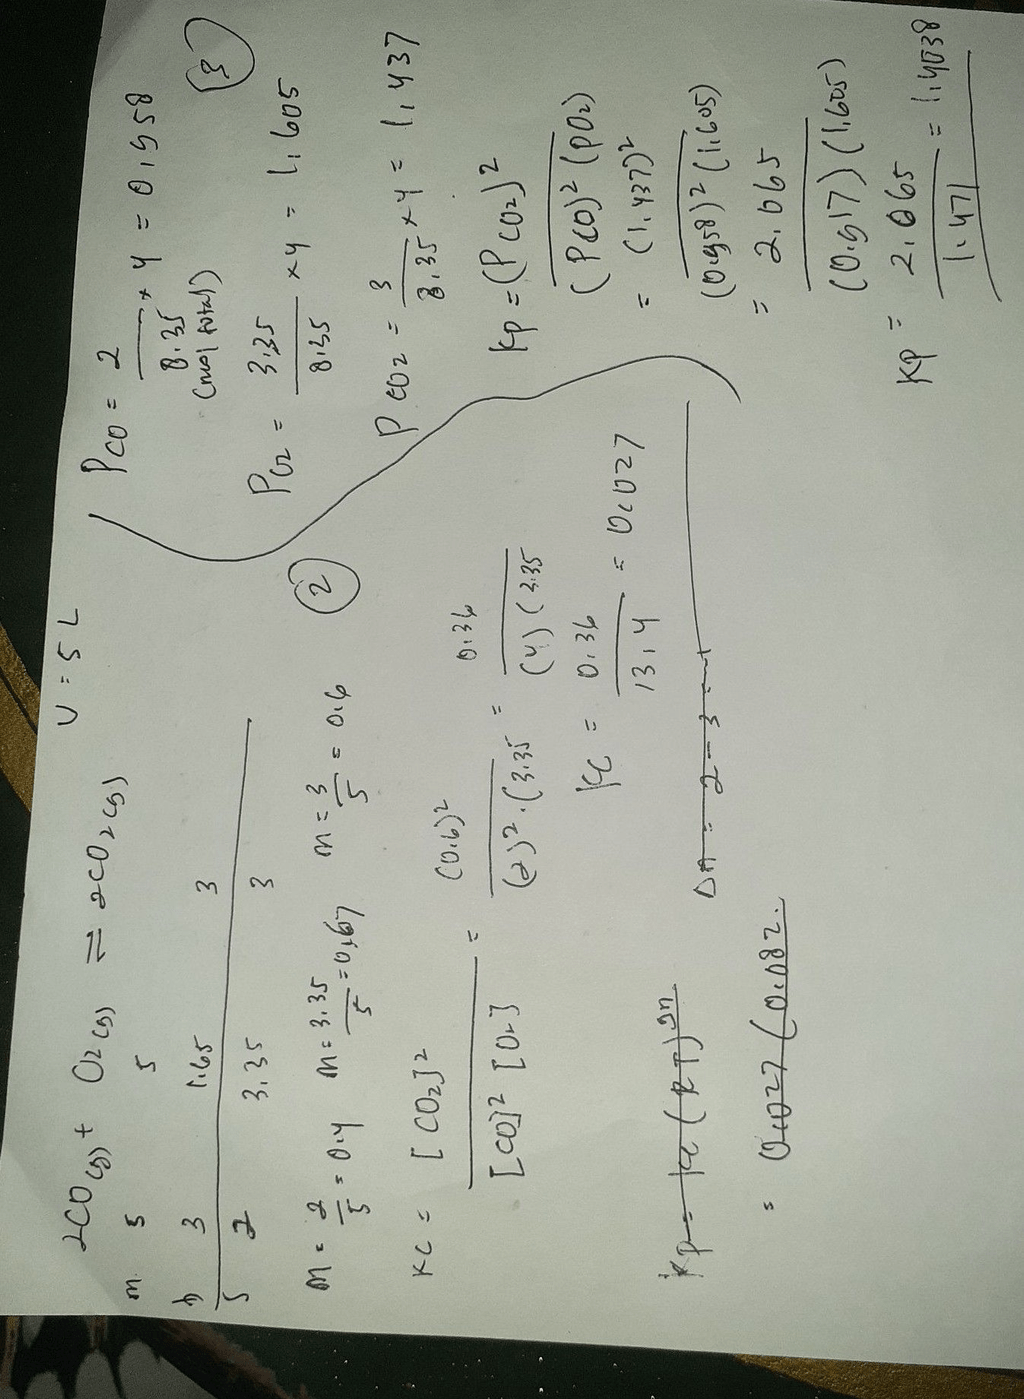 2CO(g) + O2(g) ⇌ 2CO2(g) V = 5 L
m 5 5
b 3 1.65 3
s 2 3.35 3
M = 2/5 = 0.4 M = 3.35/5 = 0.67 M = 3/5 = 0.6
②
KC = [CO2]² / [CO]² [O2] = (0.6)² / (2)².(3.35 = 0.36 / (4)(3.35
KC = 0.36 / 13.4 = 0.027
Kp = Kc (RT)^Δn Δn = 2 - 3
= 0.027 (0.082.
PCO = 2 / 8.35 x 4 = 0.958
(mol total)
③
PO2 = 3.35 / 8.35 x 4 = 1.605
PCO2 = 3 / 8.35 x 4 = 1.437
Kp = (PCO2)² / (PCO)² (PO2)
= (1.437)² / (0.958)² (1.605)
= 2.065 / (0.917) (1.605)
Kp = 2.065 / 1.471 = 1.4038